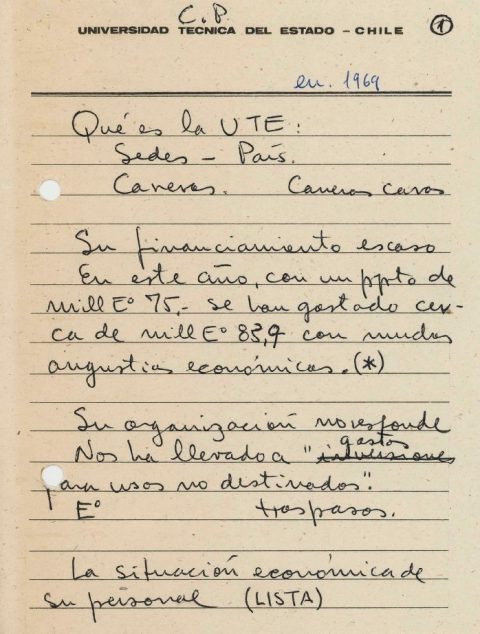 C.P.
UNIVERSIDAD TECNICA DEL ESTADO – CHILE
1
en. 1969
Qué es la UTE:
Sedes – País.
Carreras. Carreras caras
Su financiamiento escaso
En este año, con un ppto de
mill Eº 75,- se han gastado cer-
ca de mill Eº 83,9 con muchas
angustias económicas. (*)
Su organización no responde
gastos
Nos ha llevado a "inversiones
para usos no destinados".
Eº traspasos.
La situación económica de
su personal (LISTA)